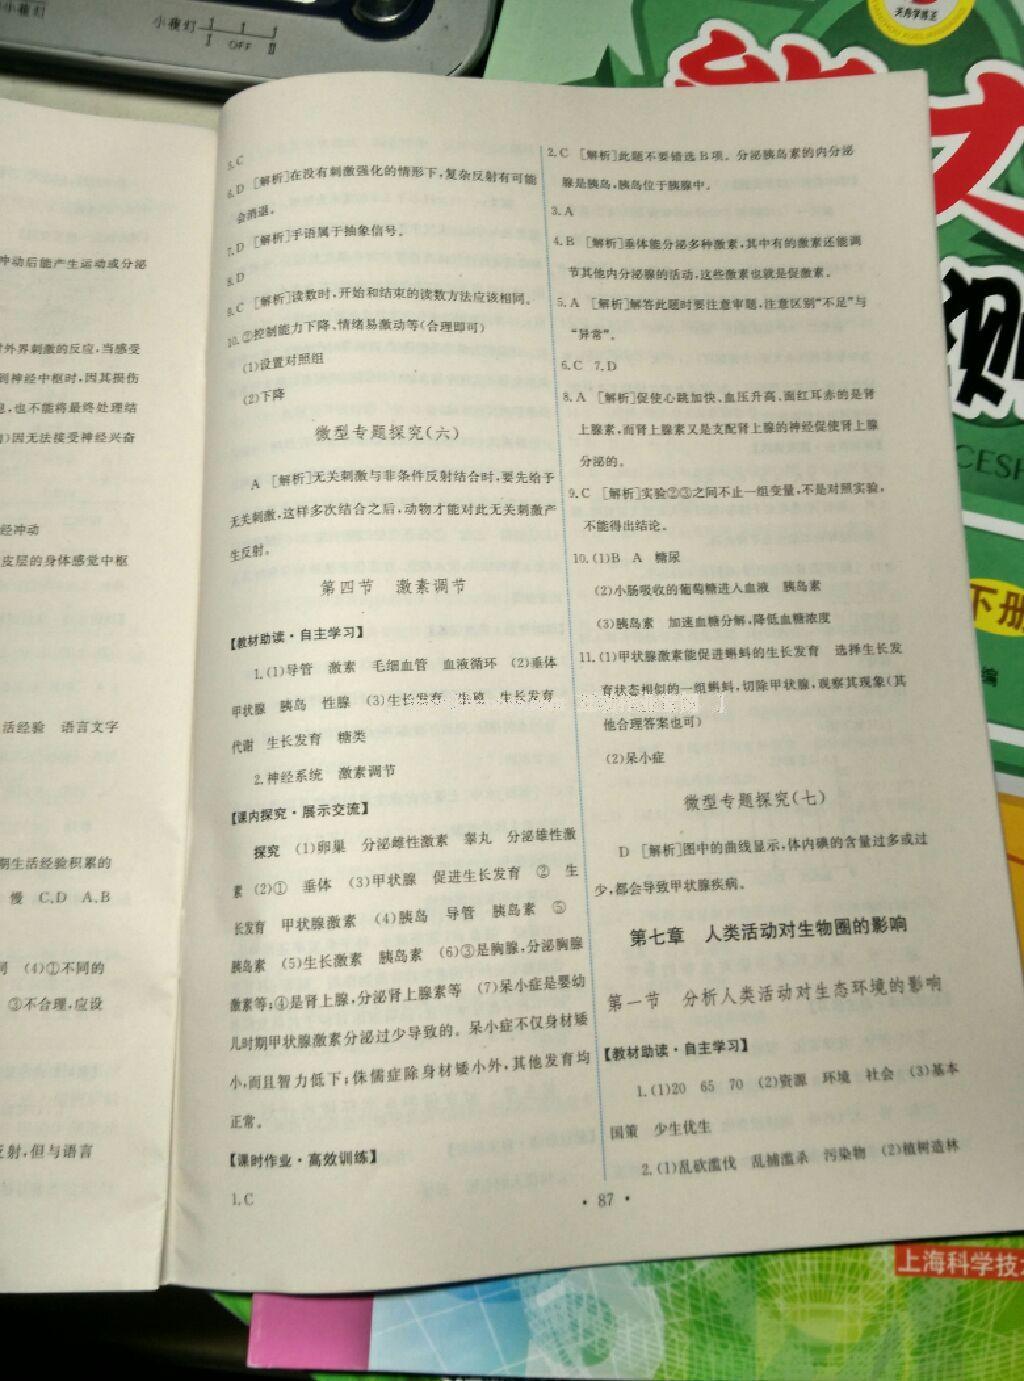 小夜灯
I OFF II
冲动后能产生运动或分泌
对外界刺激的反应,当感受
到神经中枢时,因其损伤
,也不能将最终处理结
)因无法接受神经兴奋
经冲动
皮层的身体感觉中枢
活经验 语言文字
期生活经验积累的
慢 C.D A.B
同 (4)①不同的
③不合理,应设
反射,但与语言
5.C
6.D [解析]在没有刺激强化的情形下,复杂反射有可能
会消退。
7.D [解析]手语属于抽象信号。
8.D
9.C [解析]读数时,开始和结束的读数方法应该相同。
10.②控制能力下降、情绪易激动等(合理即可)
(1)设置对照组
(2)下降
微型专题探究(六)
A [解析]无关刺激与非条件反射结合时,要先给予
无关刺激,这样多次结合之后,动物才能对此无关刺激产
生反射。
第四节 激素调节
【教材助读·自主学习】
1.(1)导管 激素 毛细血管 血液循环 (2)垂体
甲状腺 胰岛 性腺 (3)生长发育 生殖 生长发育
代谢 生长发育 糖类
2.神经系统 激素调节
【课内探究·展示交流】
探究 (1)卵巢 分泌雌性激素 睾丸 分泌雄性激
素 (2)① 垂体 (3)甲状腺 促进生长发育 ② 生
长发育 甲状腺激素 (4)胰岛 导管 胰岛素 ⑤
胰岛素 (5)生长激素 胰岛素 (6)③是胸腺,分泌胸腺
激素等;④是肾上腺,分泌肾上腺素等 (7)呆小症是婴幼
儿时期甲状腺激素分泌过少导致的。呆小症不仅身材矮
小,而且智力低下;侏儒症除身材矮小外,其他发育均
正常。
【课时作业·高效训练】
1.C
2.C [解析]此题不要错选B项。分泌胰岛素的内分泌
腺是胰岛,胰岛位于胰腺中。
3.A
4.B [解析]垂体能分泌多种激素,其中有的激素还能调
节其他内分泌腺的活动,这些激素也就是促激素。
5.A [解析]解答此题时要注意审题,注意区别“不足”与
“异常”。
6.C 7.D
8.A [解析]促使心跳加快、血压升高、面红耳赤的是肾
上腺素,而肾上腺素又是支配肾上腺的神经促使肾上腺
分泌的。
9.C [解析]实验②③之间不止一组变量,不是对照实验,
不能得出结论。
10.(1)B A 糖尿
(2)小肠吸收的葡萄糖进入血液 胰岛素
(3)胰岛素 加速血糖分解,降低血糖浓度
11.(1)甲状腺激素能促进蝌蚪的生长发育 选择生长发
育状态相似的一组蝌蚪,切除甲状腺,观察其现象(其
他合理答案也可)
(2)呆小症
微型专题探究(七)
D [解析]图中的曲线显示,体内碘的含量过多或过
少,都会导致甲状腺疾病。
第七章 人类活动对生物圈的影响
第一节 分析人类活动对生态环境的影响
【教材助读·自主学习】
1.(1)20 65 70 (2)资源 环境 社会 (3)基本
国策 少生优生
2.(1)乱砍滥伐 乱捕滥杀 污染物 (2)植树造林
· 87 ·
CESH
下册
编
上海科学技术